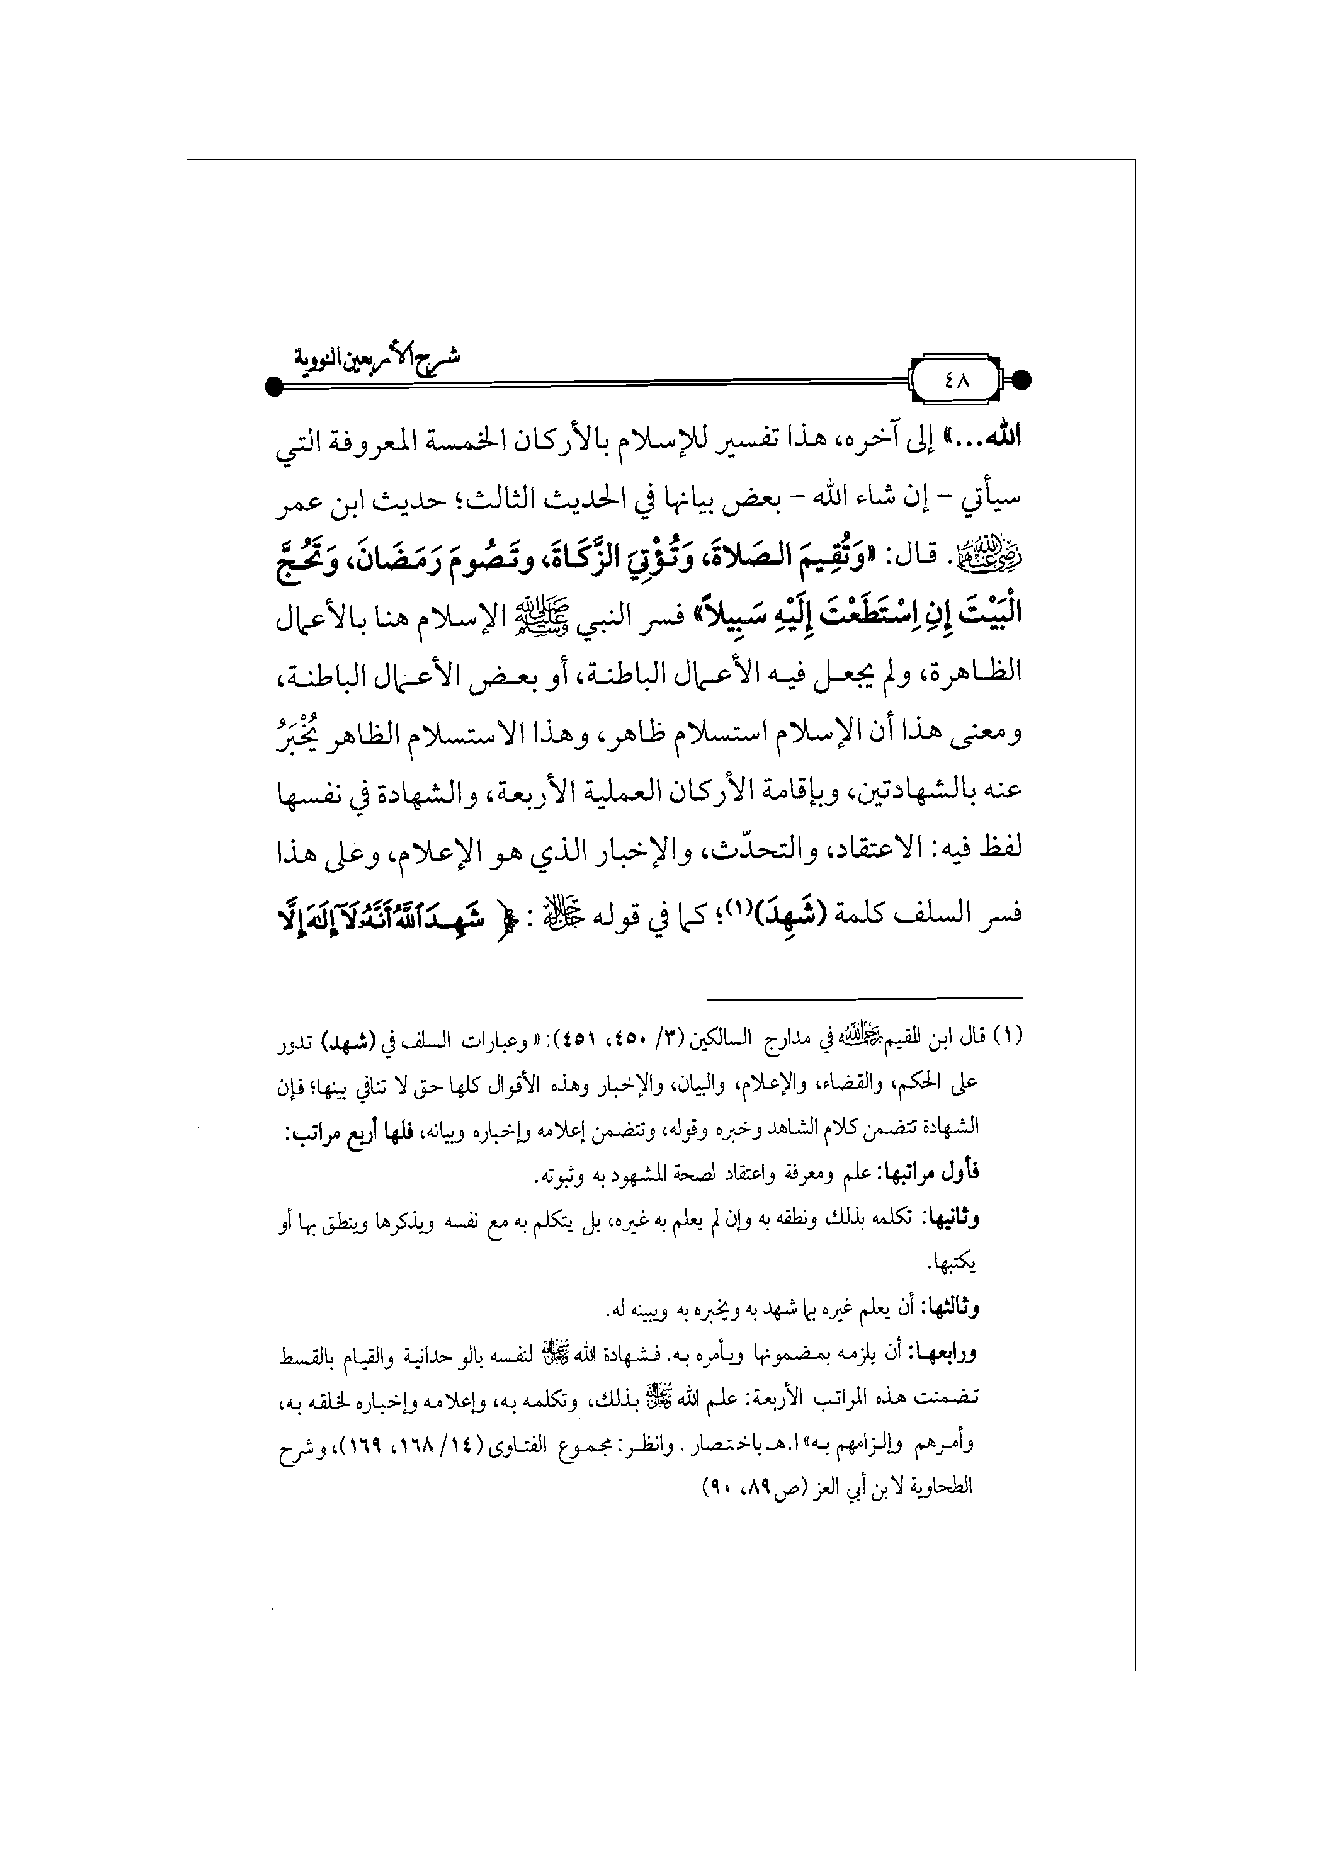 شرح الأربعين النووية
٤٨
الله...» إلى آخره، هذا تفسير للإسلام بالأركان الخمسة المعروفة التي
سيأتي – إن شاء الله – بعض بيانها في الحديث الثالث؛ حديث ابن عمر
رضي الله عنهما. قال: «وَتُقِيمَ الصَلاةَ، وَتُؤْتِيَ الزَّكَاةَ، وتَصُومَ رَمَضَانَ، وَتَحُجَّ
الْبَيْتَ إِنِ اِسْتَطَعْتَ إِلَيْهِ سَبِيلاً» فسر النبي ﷺ الإسلام هنا بالأعمال
الظاهرة، ولم يجعل فيه الأعمال الباطنة، أو بعض الأعمال الباطنة،
ومعنى هذا أن الإسلام استسلام ظاهر، وهذا الاستسلام الظاهر يُخْبَرُ
عنه بالشهادتين، وبإقامة الأركان العملية الأربعة، والشهادة في نفسها
لفظ فيه: الاعتقاد، والتحدّث، والإخبار الذي هو الإعلام، وعلى هذا
فسر السلف كلمة (شَهِدَ)(١)؛ كما في قوله ﷻ : ﴿ شَهِدَ ٱللَّهُ أَنَّهُۥ لَآ إِلَٰهَ إِلَّا
(١) قال ابن القيم رحمه الله في مدارج السالكين (٣/ ٤٥٠، ٤٥١): «وعبارات السلف في (شهد) تدور
على الحكم، والقضاء، والإعلام، والبيان، والإخبار وهذه الأقوال كلها حق لا تنافي بينها؛ فإن
الشهادة تتضمن كلام الشاهد وخبره وقوله، وتتضمن إعلامه وإخباره وبيانه، فلها أربع مراتب:
فأول مراتبها: علم ومعرفة واعتقاد لصحة المشهود به وثبوته.
وثانيها: تكلمه بذلك ونطقه به وإن لم يعلم به غيره، بل يتكلم به مع نفسه ويذكرها وينطق بها أو
يكتبها.
وثالثها: أن يعلم غيره بما شهد به ويخبره به ويبينه له.
ورابعها: أن يلزمه بمضمونها ويأمره به. فشهادة الله لنفسه بالوحدانية والقيام بالقسط
تضمنت هذه المراتب الأربعة: علم الله بذلك، وتكلمه به، وإعلامه وإخباره لخلقه به،
وأمرهم وإلزامهم به» ا.هـ باختصار. وانظر: مجموع الفتاوى (١٤/ ١٦٨، ١٦٩)، وشرح
الطحاوية لابن أبي العز (ص٨٩، ٩٠)